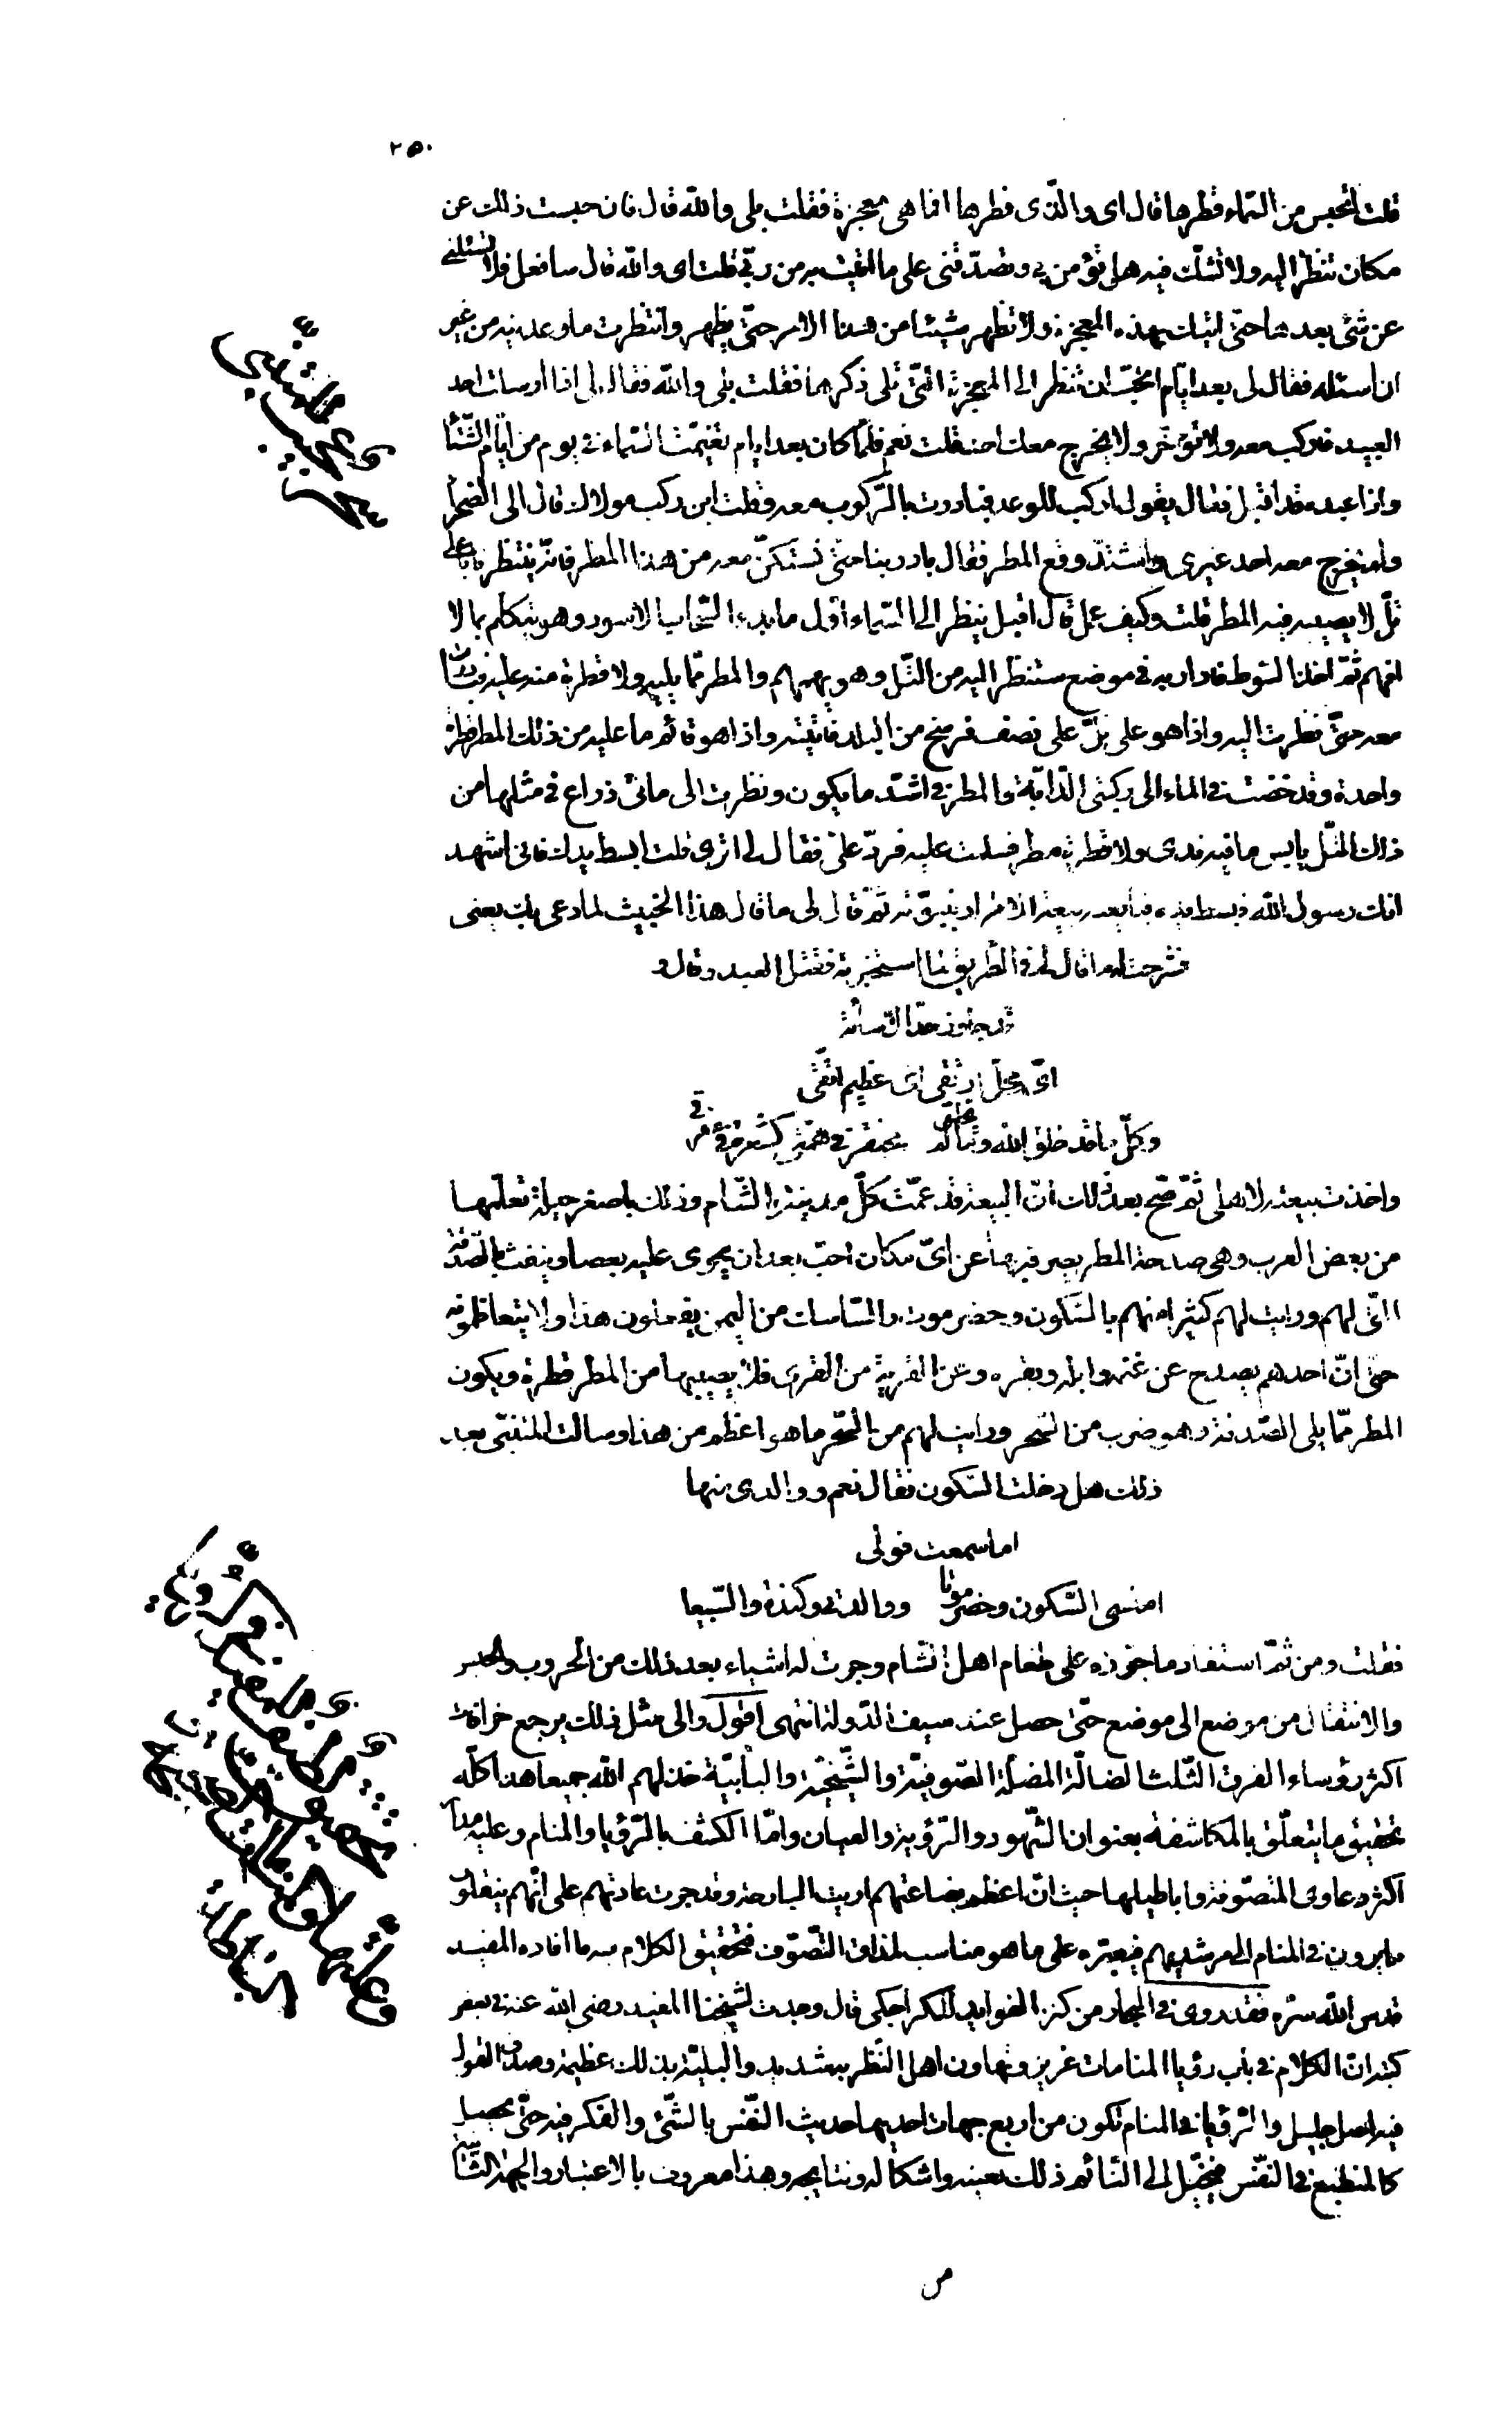 ٢٥٠
قلت أتحبس من السّماء قطرها قال اى والّذى فطرها افما هى معجزة فقلت بلى والله قال فان حبست ذلك عن
مكان تنظر اليه ولا تشكّ فيه هل تؤمن بى وتصدّقنى على ما اتيت به من ربّى قلت اى والله قال سافعل فلا تسئلنى
عن شئ بعدها حتّى اتيك بهذه المعجزة ولا تظهر شيئا من هذا الامر حتّى يظهر وانتظرت ما وعدنيه من غير
ان اسئله فقال لى بعد ايّام اتحبّ ان تنظر الى المعجزة الّتى جرى ذكرها فقلت بلى والله فقال لى اذا ارسلت احد
العبيد فاركب معه ولا تؤخّر ولا يخرج معك احد قلت نعم فلمّا كان بعد ايام تغيّمت السّماء فى يوم من ايّام الشّتا
واذا عبده قد اقبل فقال يقول اركب للوعد فبادرت بالرّكوب معه وقلت اين ركب مولاك قال الى الصّحرا
ولم يخرج معه احد غيرى واشتدّ وقع المطر فقال بادر بنا حتّى نستكنّ معه من هذا المطر فانّه ينتظرنا باعلى
تلّ لا يصيبه فيه المطر قلت وكيف عمل قال اقبل ينظر الى السّماء اوّل ما بدء السّحاب الاسود وهو يتكلّم بما لا
افهم ثمّ اخذ السّوط فادار به فى موضع ستنظر اليه من التّل وهو يهمهم والمطر ممّا يليه ولا قطرة منه عليه فبادرت
معه حتّى نظرت اليه واذا هو على تلّ على نصف فرسخ من البلد فاتيته واذا هو قائم ما عليه من ذلك المطر قطرة
واحدة وقد خضت فى الماء الى ركبتى الدّابّة والمطر فى اشدّ ما يكون ونظرت الى مائتى ذراع فى مثلها من
ذلك التّل يابس ما فيه ندى ولا قطرة مطر فسلمت عليه فردّ علىّ فقال لى ما ترى فقلت ابسط يدك فانى اشهد
انك رسول الله فبسط يده فبايعته بيعة الاقرار بنبوّته ثمّ قال لى ما قال هذا الخبيث لما دعى بك يعنى
فشرحت له ما قال لى فى الطّريق لمّا استخبرته فقتل العبد وقال و
اىّ محلّ ارتقى اىّ عظيم اتّقى
وكلّ ما قد خلق الله وما لم يخلق محتقر فى همّتى كشعرة فى مفرقى
واخذت بيعته لاهلى ثمّ صحّ بعد ذلك انّ البيعة قد عمّت كلّ مدينة بالشّام وذلك باصغر حيلة تعلّمها
من بعض العرب وهى صدحة المطر يصرفه بها عن اىّ مكان احبّ بعد ان يحوى عليه بعصا وينفث بالصّدحة
الّتى لهم ورايت لهم كثيرا منهم بالسّكون وحضرموت والسّكاسك من اليمن يفعلون هذا ولا يتعاظمونه
حتّى انّ احدهم يصدح عن غنمه وابله وبقره وعن القرية من القرى فلا يصيبها من المطر قطرة ويكون
المطر ممّا يلى الصّدحة وهو ضرب من السّحر ورايت لهم من السّحر ما هو اعظم من هذا وسالت المتنبّى بعد
ذلك هل دخلت السّكون فقال نعم ووالدى منها
اما سمعت قولى
امنسى السّكون وحضرموتا ووالدتى وكندة والسّبيعا
فقلت ومن ثمّ استفاد ما جوّزه على طغام اهل الشّام وجرت له اشياء بعد ذلك من الحروب والحبس
والانتقال من موضع الى موضع حتّى حصل عند سيف الدّولة انتهى اقول والى مثل ذلك يرجع خرافات
اكثر رؤساء الفرق الثّلث الضالّة المضلّة الصّوفيّة والشّيخيّة والبابيّة خذلهم الله جميعا هذا كلّه
تحقيق ما يتعلّق بالمكاشفة بعنوان الشّهود والرّؤية والعيان وامّا الكشف بالرّؤيا والمنام وعليه مدار
اكثر دعاوى المتصوّفة واباطيلها حيث انّ اعظم بضاعتهم اريت البارحة وقد جرت عادتهم على انّهم ينقلون
ما يرون فى المنام الى مرشديهم فيعبّره على ما هو مناسب لمذاق التّصوّف فتحقيق الكلام فيه ما افاده المفيد
قدس الله سرّه فقد روى فى البحار من كنز الفوايد للكراجكى قال وجدت لشيخنا المفيد رضى الله عنه فى بعض
كتبه انّ الكلام فى باب رؤيا المنامات عزيز وتهاون اهل النّظر به شديد والبليّة بذلك عظيمة وصدق القول
فيه اصل جليل والرّؤيا فى المنام تكون من اربع جهات احديها حديث النّفس بالشّئ والفكر فيه حتّى يحصل
كالمنطبع فى النّفس فيخيّل الى النّائم ذلك بعينه واشكاله ونتايجه وهذا معروف بالاعتبار والجهة الثّانية
من